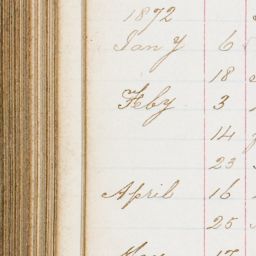 1872
Jan y 6
18
Feby 3
14
23
April 16
25
May 17